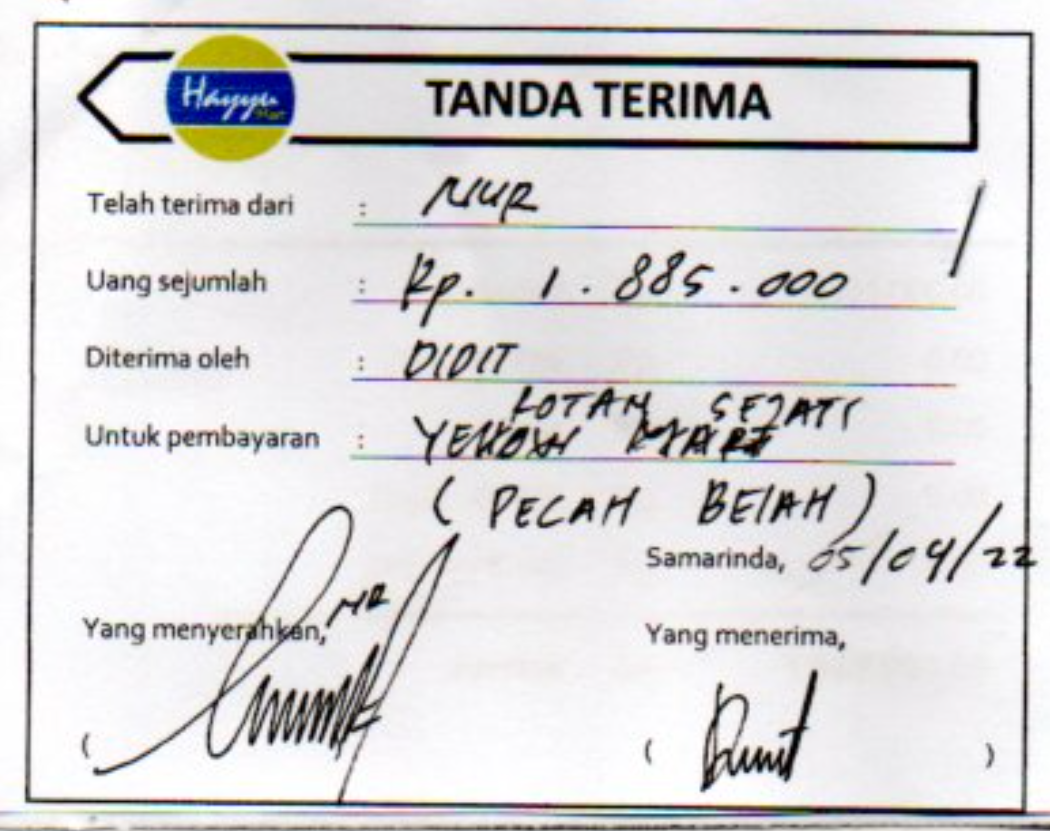 Hayyu Mart
TANDA TERIMA
Telah terima dari : NUR
Uang sejumlah : Rp. 1.885.000
Diterima oleh : DIDIT
LOTAN SEJATI
Untuk pembayaran :
( PECAH BELAH )
Samarinda, 05/04/22
Yang menyerahkan,
Yang menerima,
( ( )